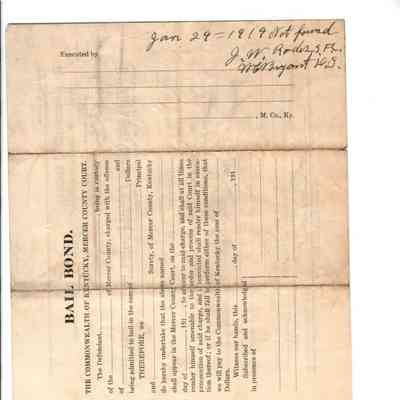 Jan 29 = 1919 Not found
J. W.
W Bryant D.S.
Executed by
, M. Co., Ky.
BAIL BOND.
THE COMMONWEALTH OF KENTUCKY, MERCER COUNTY COURT.
The Defendant, being in custody
of the of Mercer County, charged with the offense
of and
being admitted to bail in the sum of Dollars
THEREFORE, we Principal
and Surety, of Mercer County, Kentucky
do hereby undertake that the above named
shall appear in the Mercer County Court, on the
day of , 191 , to answer to said charge, and shall at all times
render himself amenable to the order and process of said Court in the
prosecution of said charge, and if convicted shall render himself in execu-
tion thereof; or if he shall fail to perform either of these conditions, that
we will pay to the Commonwealth of Kentucky the sum of
Dollars.
Witness our hands, this day of , 191
Subscribed and acknowledged
in presence of